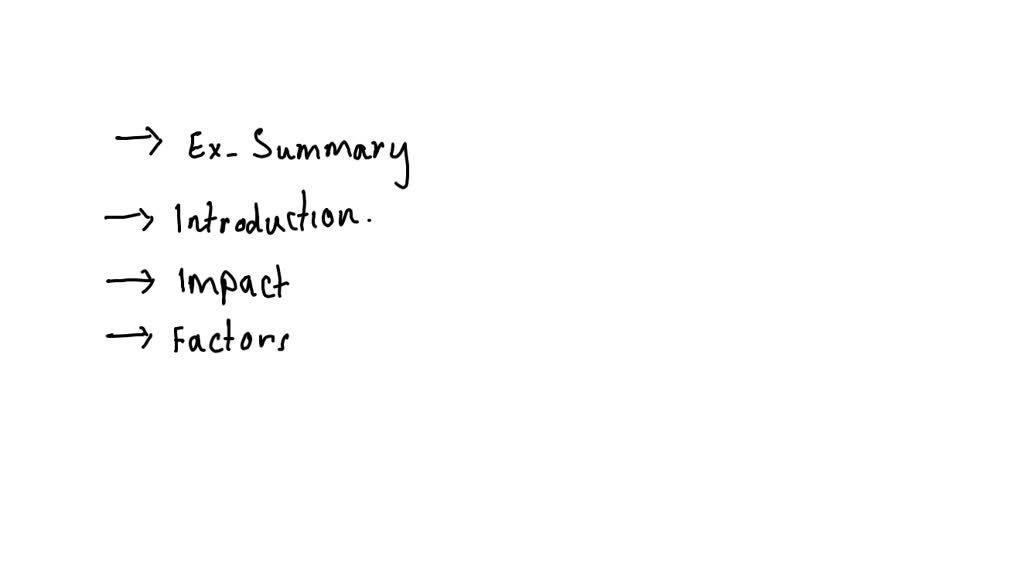 → Ex- Summary
→ Introduction.
→ Impact
→ Factors